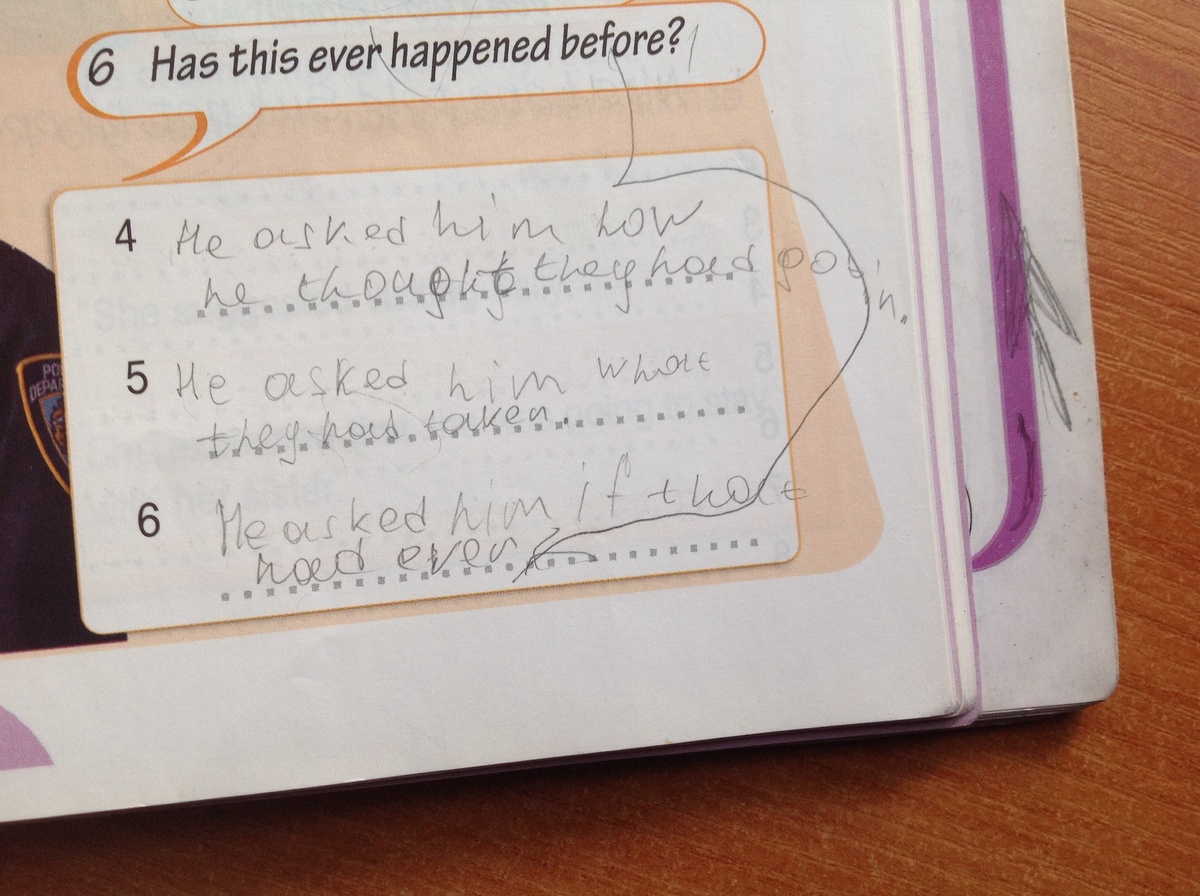 6 Has this ever happened before?
4 He asked him how
he thought they had got in.
5 He asked him what
they had taken.
6 He asked him if that
had ever